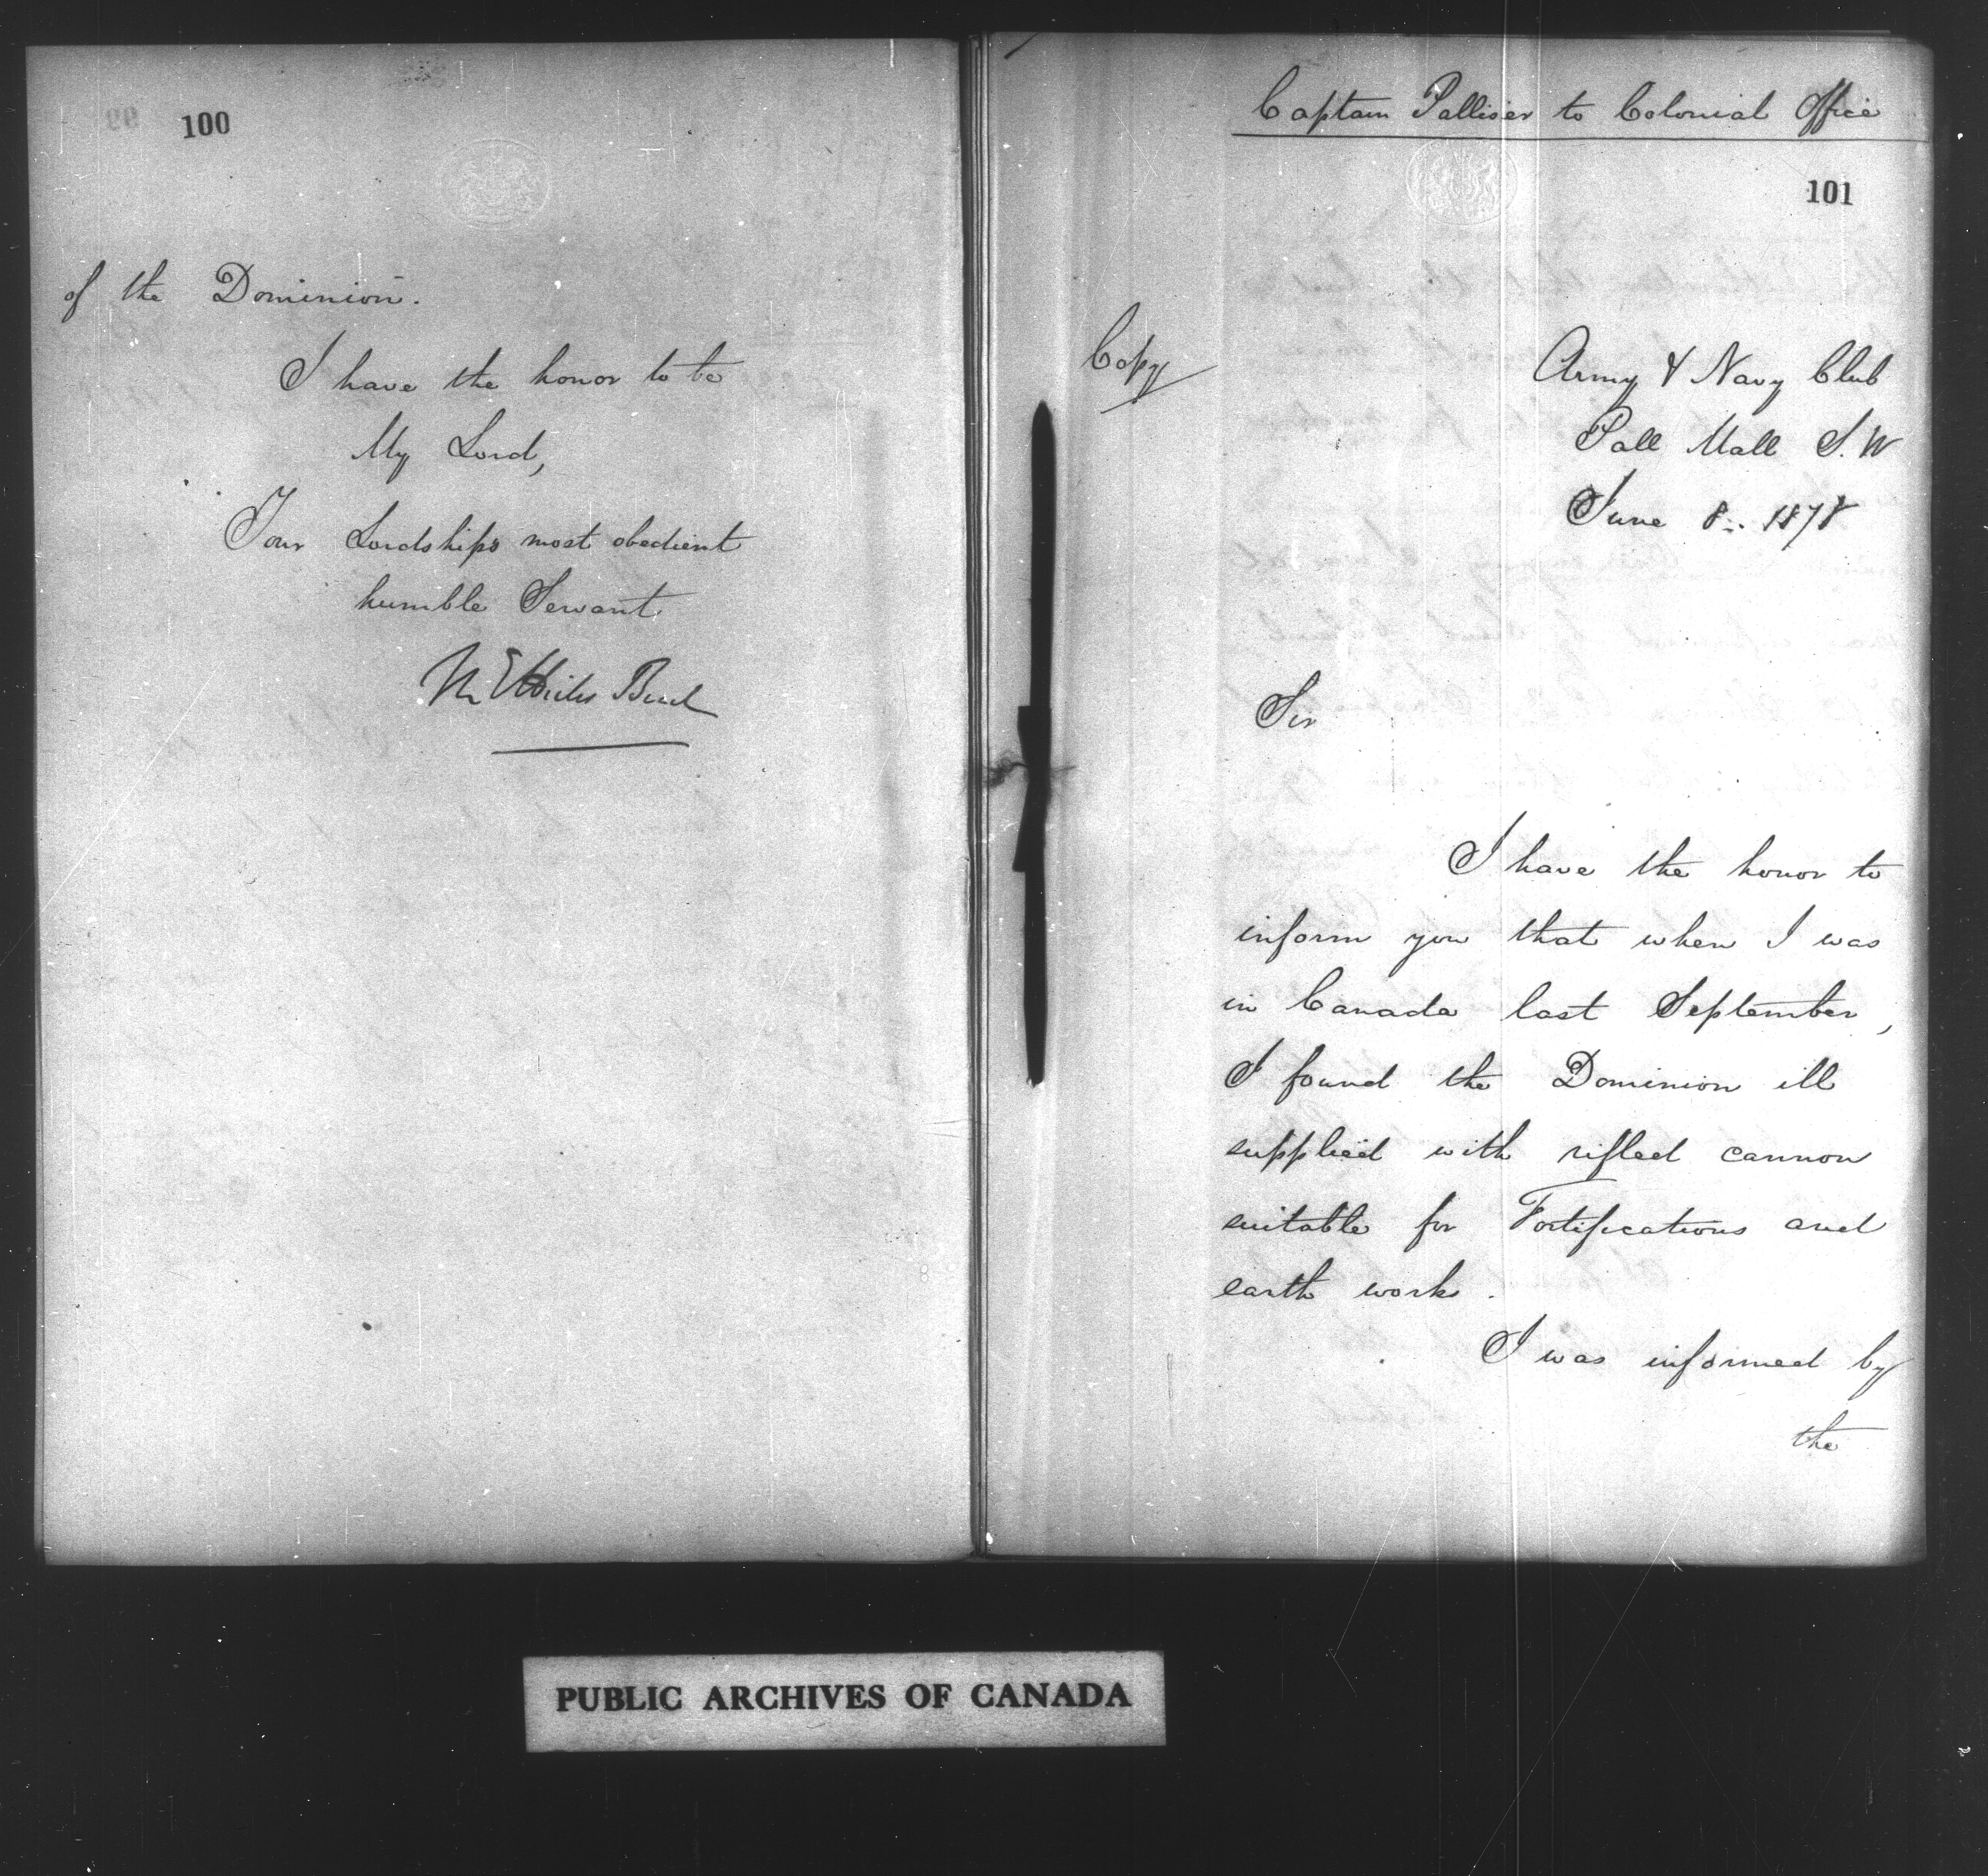 100
of the Dominion.
I have the honor to be
My Lord,
Your Lordships most obedient
humble Servant
M E Hicks Beach
Captain Palliser to Colonial Office
101
Copy
Army & Navy Club
Pall Mall S.W
June 8. 1878
Sir
I have the honor to
inform you that when I was
in Canada last September,
I found the Dominion ill
supplied with rifled cannon
suitable for Fortifications and
earth works.
I was informed by
the
PUBLIC ARCHIVES OF CANADA